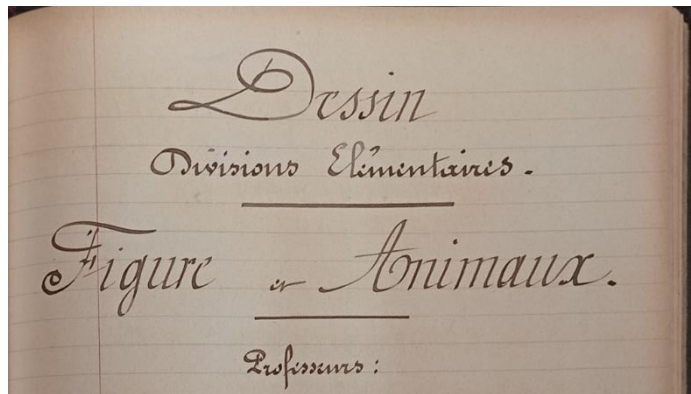 Dessin
Divisions Elémentaires.
Figure et Animaux.
Professeurs: